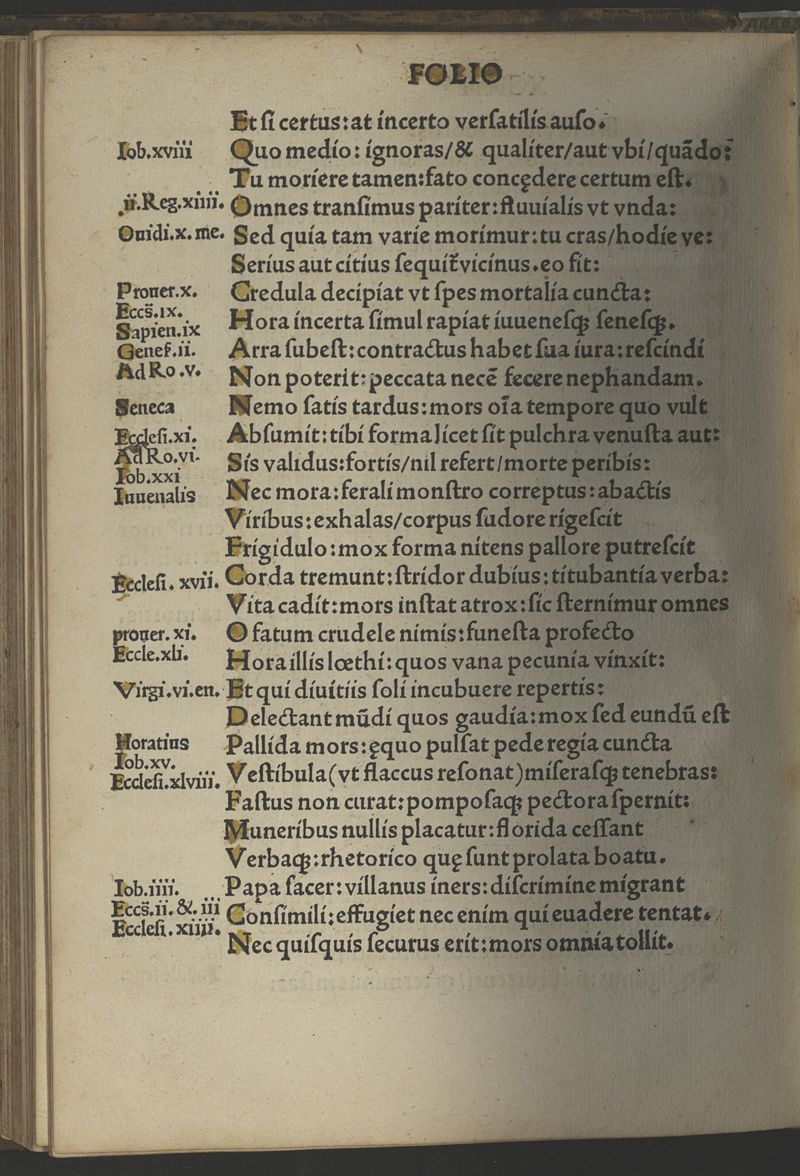 FOLIO
Et ſi certus:at incerto verſatilis auſo.
Iob.xviii Quo medio: ignoras/& qualiter/aut vbi/quãdo:
Tu moriere tamen:fato concędere certum eſt.
ii.Reg.xiiii. Omnes tranſimus pariter:fluuialis vt vnda:
Ouidi.x.me. Sed quia tam varie morimur:tu cras/hodie ve:
Serius aut citius ſequit᷑ vicinus.eo fit:
Prouer.x. Credula decipiat vt ſpes mortalia cuncta:
Eccs̃.ix. Hora incerta ſimul rapiat iuueneſqꝫ ſeneſqꝫ.
Sapien.ix
Geneſ.ii. Arra ſubeſt:contractus habet ſua iura:reſcindi
Ad Ro.v. Non poterit:peccata necẽ fecere nephandam.
Seneca Nemo ſatis tardus:mors oĩa tempore quo vult
Eccleſi.xi. Abſumit:tibi forma licet ſit pulchra venuſta aut:
Ad Ro.vi. Sis validus:fortis/nil refert/morte peribis:
Iob.xxi
Iuuenalis Nec mora:ferali monſtro correptus:abactis
Viribus:exhalas/corpus ſudore rigeſcit
Frigidulo:mox forma nitens pallore putreſcit
Eccleſi.xvii. Corda tremunt:ſtridor dubius:titubantia verba:
Vita cadit:mors inſtat atrox:ſic ſternimur omnes
prouer.xi. O fatum crudele nimis:funeſta profecto
Eccle.xli. Hora illis lœthi:quos vana pecunia vinxit:
Virgi.vi.en. Et qui diuitiis ſoli incubuere repertis:
Delectant mũdi quos gaudia:mox ſed eundũ eſt
Horatius Pallida mors:ęquo pulſat pede regia cuncta
Iob.xv.
Eccleſi.xlviii. Veſtibula(vt flaccus reſonat)miſeraſqꝫ tenebras:
Faſtus non curat:pompoſaqꝫ pectora ſpernit:
Muneribus nullis placatur:florida ceſſant
Verbaqꝫ:rhetorico quę ſunt prolata boatu.
Iob.iiii. Papa ſacer:villanus iners:diſcrimine migrant
Eccs̃.ii.&.iii Conſimili:effugiet nec enim qui euadere tentat.
Eccleſi.xiiii. Nec quiſquis ſecurus erit:mors omnia tollit.